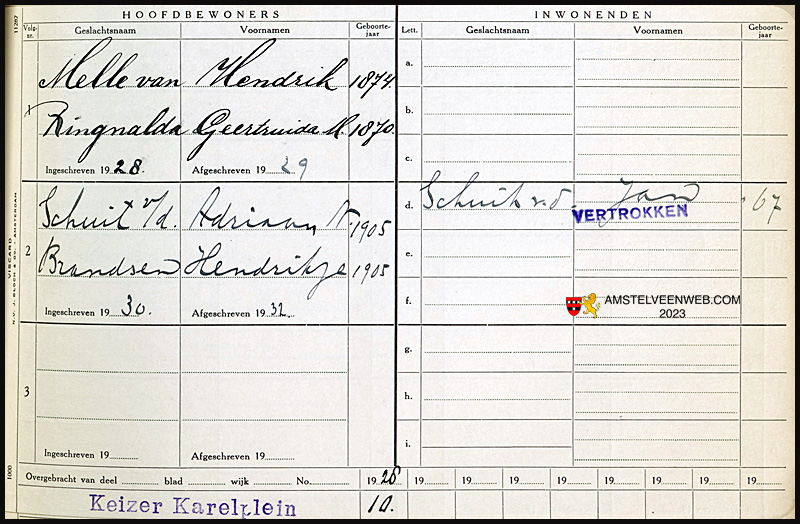 HOOFDBEWONERS
INWONENDEN
11287
Volg-nr.
Geslachtsnaam
Voornamen
Geboorte-jaar
Lett.
Geslachtsnaam
Voornamen
Geboorte-jaar
Melle van Hendrik 1874.
1
Ringnalda Geertruida M. 1870.
Ingeschreven 1928.
Afgeschreven 1929
a.
b.
c.
Schuit v/d. Adriaan N. 1905
2
Brandsen Hendrikje 1905
Ingeschreven 1930.
Afgeschreven 1932.
d. Schuit v.d. Jan '67
VERTROKKEN
e.
f.
AMSTELVEENWEB.COM
2023
3
Ingeschreven 19
Afgeschreven 19
g.
h.
i.
Overgebracht van deel blad wijk No. 1928 19 19 19 19 19 19 19 19
Keizer Karelplein 10.
1000